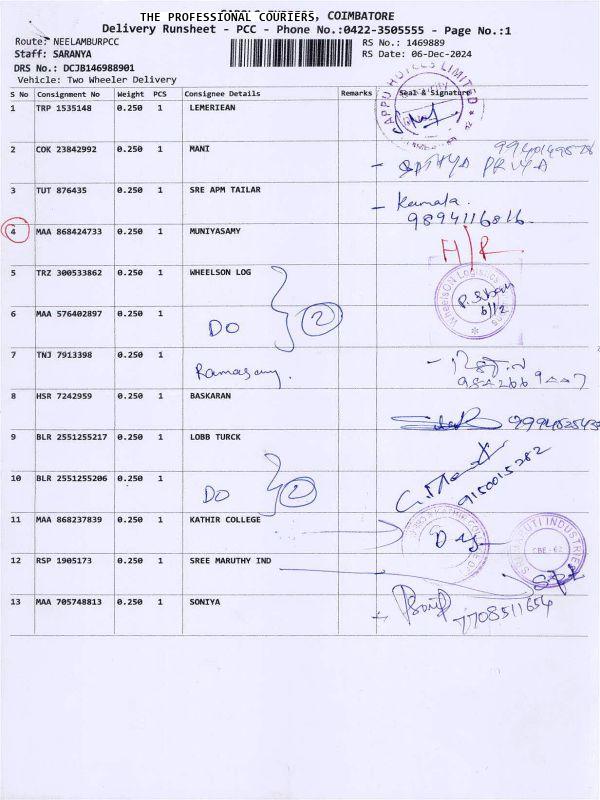 THE PROFESSIONAL COURIERS, COIMBATORE
Delivery Runsheet - PCC - Phone No.:0422-3505555 - Page No.:1
Route: NEELAMBURPCC RS No.: 1469889
Staff: SARANYA RS Date: 06-Dec-2024
DRS No.: DCJB146988901
Vehicle: Two Wheeler Delivery
S No Consignment No Weight PCS Consignee Details Remarks Seal & Signature
1 TRP 1535148 0.250 1 LEMERIEAN
APPU HOTELS LIMITED
2 COK 23842992 0.250 1 MANI
SATHYA PRIYA
3 TUT 876435 0.250 1 SRE APM TAILAR
Kamala.
9894116816
4 MAA 868424733 0.250 1 MUNIYASAMY
H/R
5 TRZ 300533862 0.250 1 WHEELSON LOG
WheelsON Logistics
6/12
6 MAA 576402897 0.250 1 DO 2
7 TNJ 7913398 0.250 1 Ramasamy.
8 HSR 7242959 0.250 1 BASKARAN
9 BLR 2551255217 0.250 1 LOBB TURCK
9150015282
10 BLR 2551255206 0.250 1 DO 2
11 MAA 868237839 0.250 1 KATHIR COLLEGE
12 RSP 1905173 0.250 1 SREE MARUTHY IND
INDUSTRIES
CBE - 62
13 MAA 705748813 0.250 1 SONIYA
7708511654